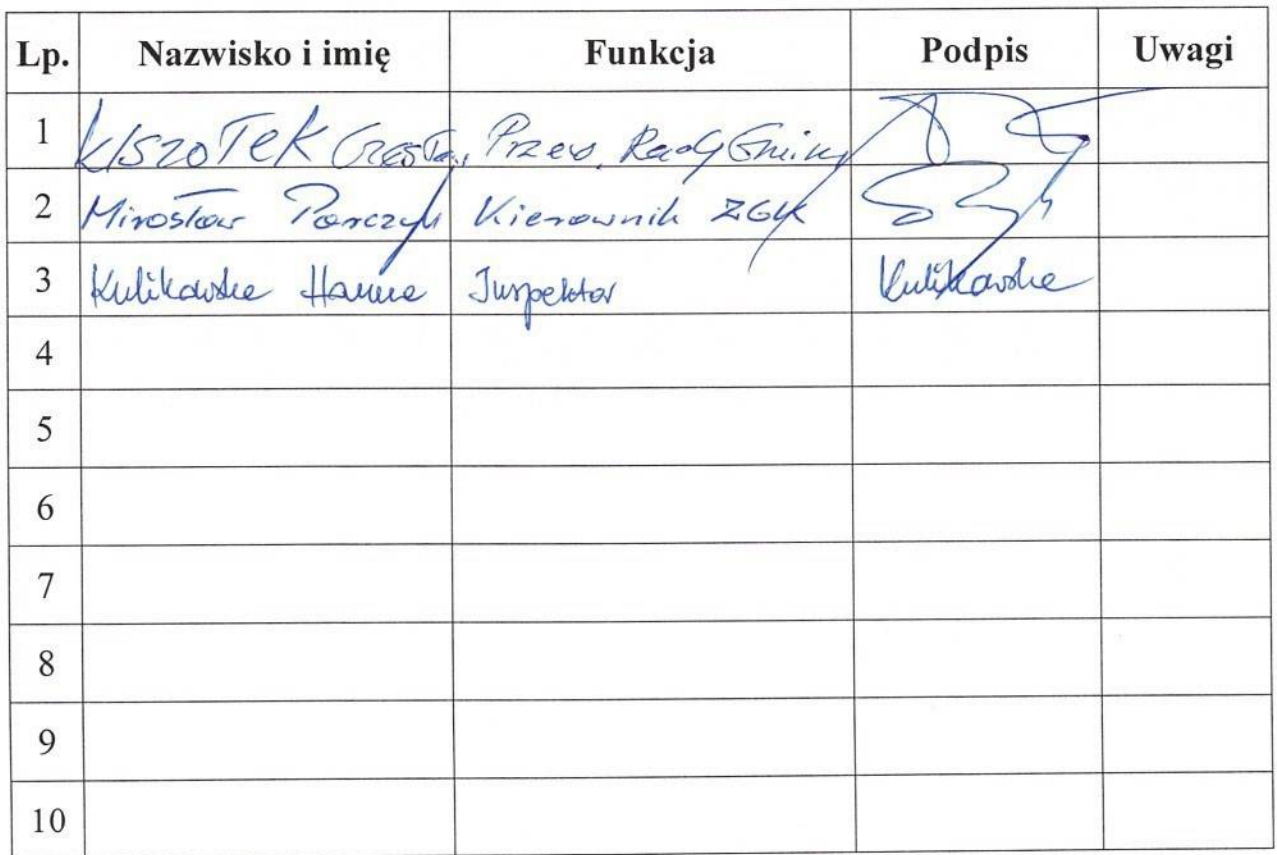 Lp. Nazwisko i imię Funkcja Podpis Uwagi
1 Przew. Rady Gminy
2 Mirosław Parczyk Kierownik ZGK
3 Kulikowska Hanna Inspektor Kulikowska
4
5
6
7
8
9
10